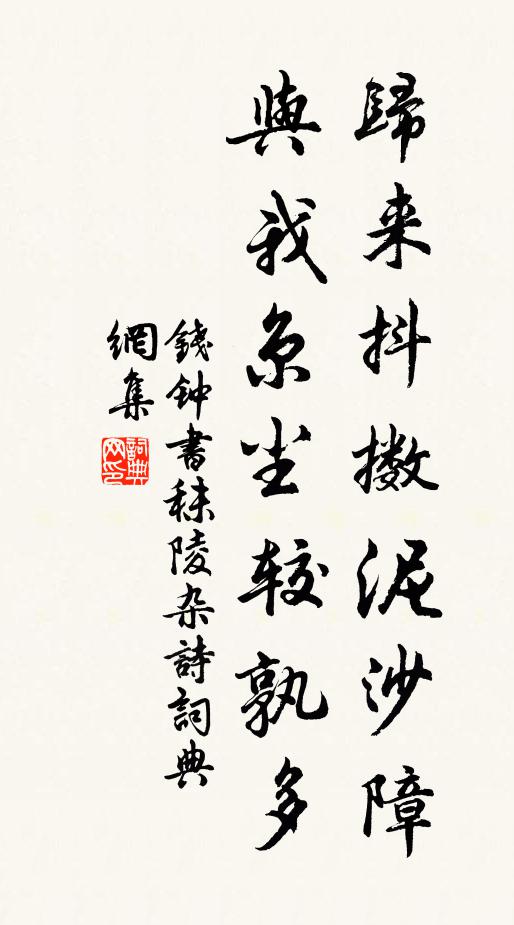 歸来抖擞泥沙障
與我京尘较孰多
錢钟書秣陵杂詩詞典
網集
詞典
网印